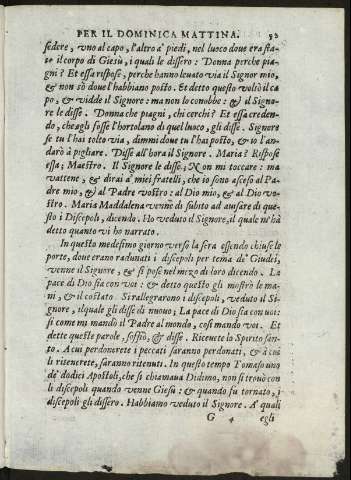 PER IL DOMINICA MATTINA. 52
sedere, uno al capo, l'altro a' piedi, nel luoco doue era sta-
to il corpo di Giesù, i quali le dissero: Donna perche pia-
gni? Et essa rispose, perche hanno leuato via il Signor mio,
& non sò doue l'habbiano posto. Et detto questo voltò il ca
po, & vidde il Signore: ma non lo conobbe: & il Signo-
re le disse. Donna che piagni, chi cerchi? Et essa creden-
do, che egli fosse l'hortolano di quel luoco, gli disse. Signore
se tu l'hai tolto via, dimmi doue tu l'hai posto, & io l'an-
darò à pigliare. Disse all'hora il Signore. Maria? Rispose
essa; Maestro. Il Signore le disse; Non mi toccare: ma
vattene, & dirai a' miei fratelli, che io sono asceso al Pa
dre mio, & al Padre vostro: al Dio mio, & al Dio vo-
stro. Maria Maddalena venne di subito ad auisare di que-
sto i Discepoli, dicendo. Ho veduto il Signore, il quale m'hà
detto quanto vi ho narrato.
In questo medesimo giorno verso la sera essendo chiuse le
porte, doue erano radunati i discepoli per tema de' Giudei,
venne il Signore, & si pose nel mezo di loro dicendo. La
pace di Dio sia con voi: & detto questo gli mostrò le ma-
ni, & il costato. Si rallegrarono i discepoli, veduto il Si-
gnore, ilquale gli disse di nuouo; La pace di Dio sia con voi:
si come mi mandò il Padre al mondo, cosi mando voi. Et
dette queste parole, soffiò, & disse. Riceuete lo Spirito san-
to. A cui perdonerete i peccati saranno perdonati, & à cui
li ritenerete, saranno ritenuti. In questo tempo Tomaso uno
de' dodici Apostoli, che si chiamaua Didimo, non si trouò con
li discepoli quando venne Giesù: & quando fu tornato, i
discepoli gli dissero. Habbiamo veduto il Signore. A' quali
G 4 egli